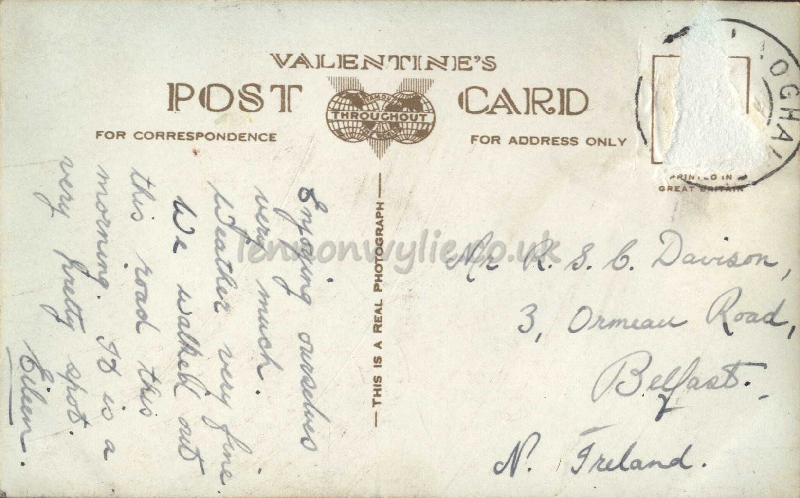 VALENTINE'S
POST CARD
FAMOUS
THROUGHOUT
THE WORLD
FOR CORRESPONDENCE
FOR ADDRESS ONLY
OGHAL
PRINTED IN
GREAT BRITAIN
THIS IS A REAL PHOTOGRAPH
lennonwylie.co.uk
Enjoying ourselves
very much.
Weather very fine
We walked out
this road this
morning. It is a
very pretty spot.
Eileen.
Mr R. S. C. Davison,
3, Ormeau Road,
Belfast.
N. Ireland.